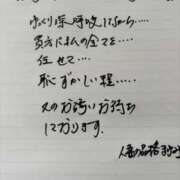 ゆっくり深呼吸してから‥‥
貴方に私の全てを‥‥
任せて‥‥
恥ずかしい程‥‥
又のお誘いお待ち
しております。
人妻の品格